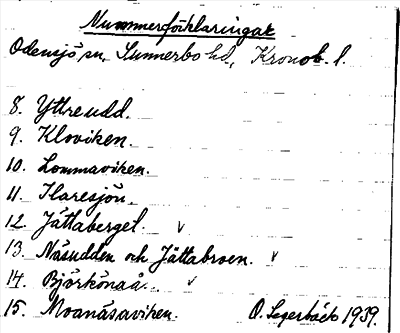 Nummerförklaringar
Odensjö sn, Sunnerbo hd, Kronob. l.
8. Yttreudd.
9. Kloviken.
10. Lommaviken.
11. Flaresjön.
12. Jättaberget. v
13. Näsudden och Jättabroen. v
14. Björkönaå. v
15. Moanäsaviken. O. Segerbäck 1939.